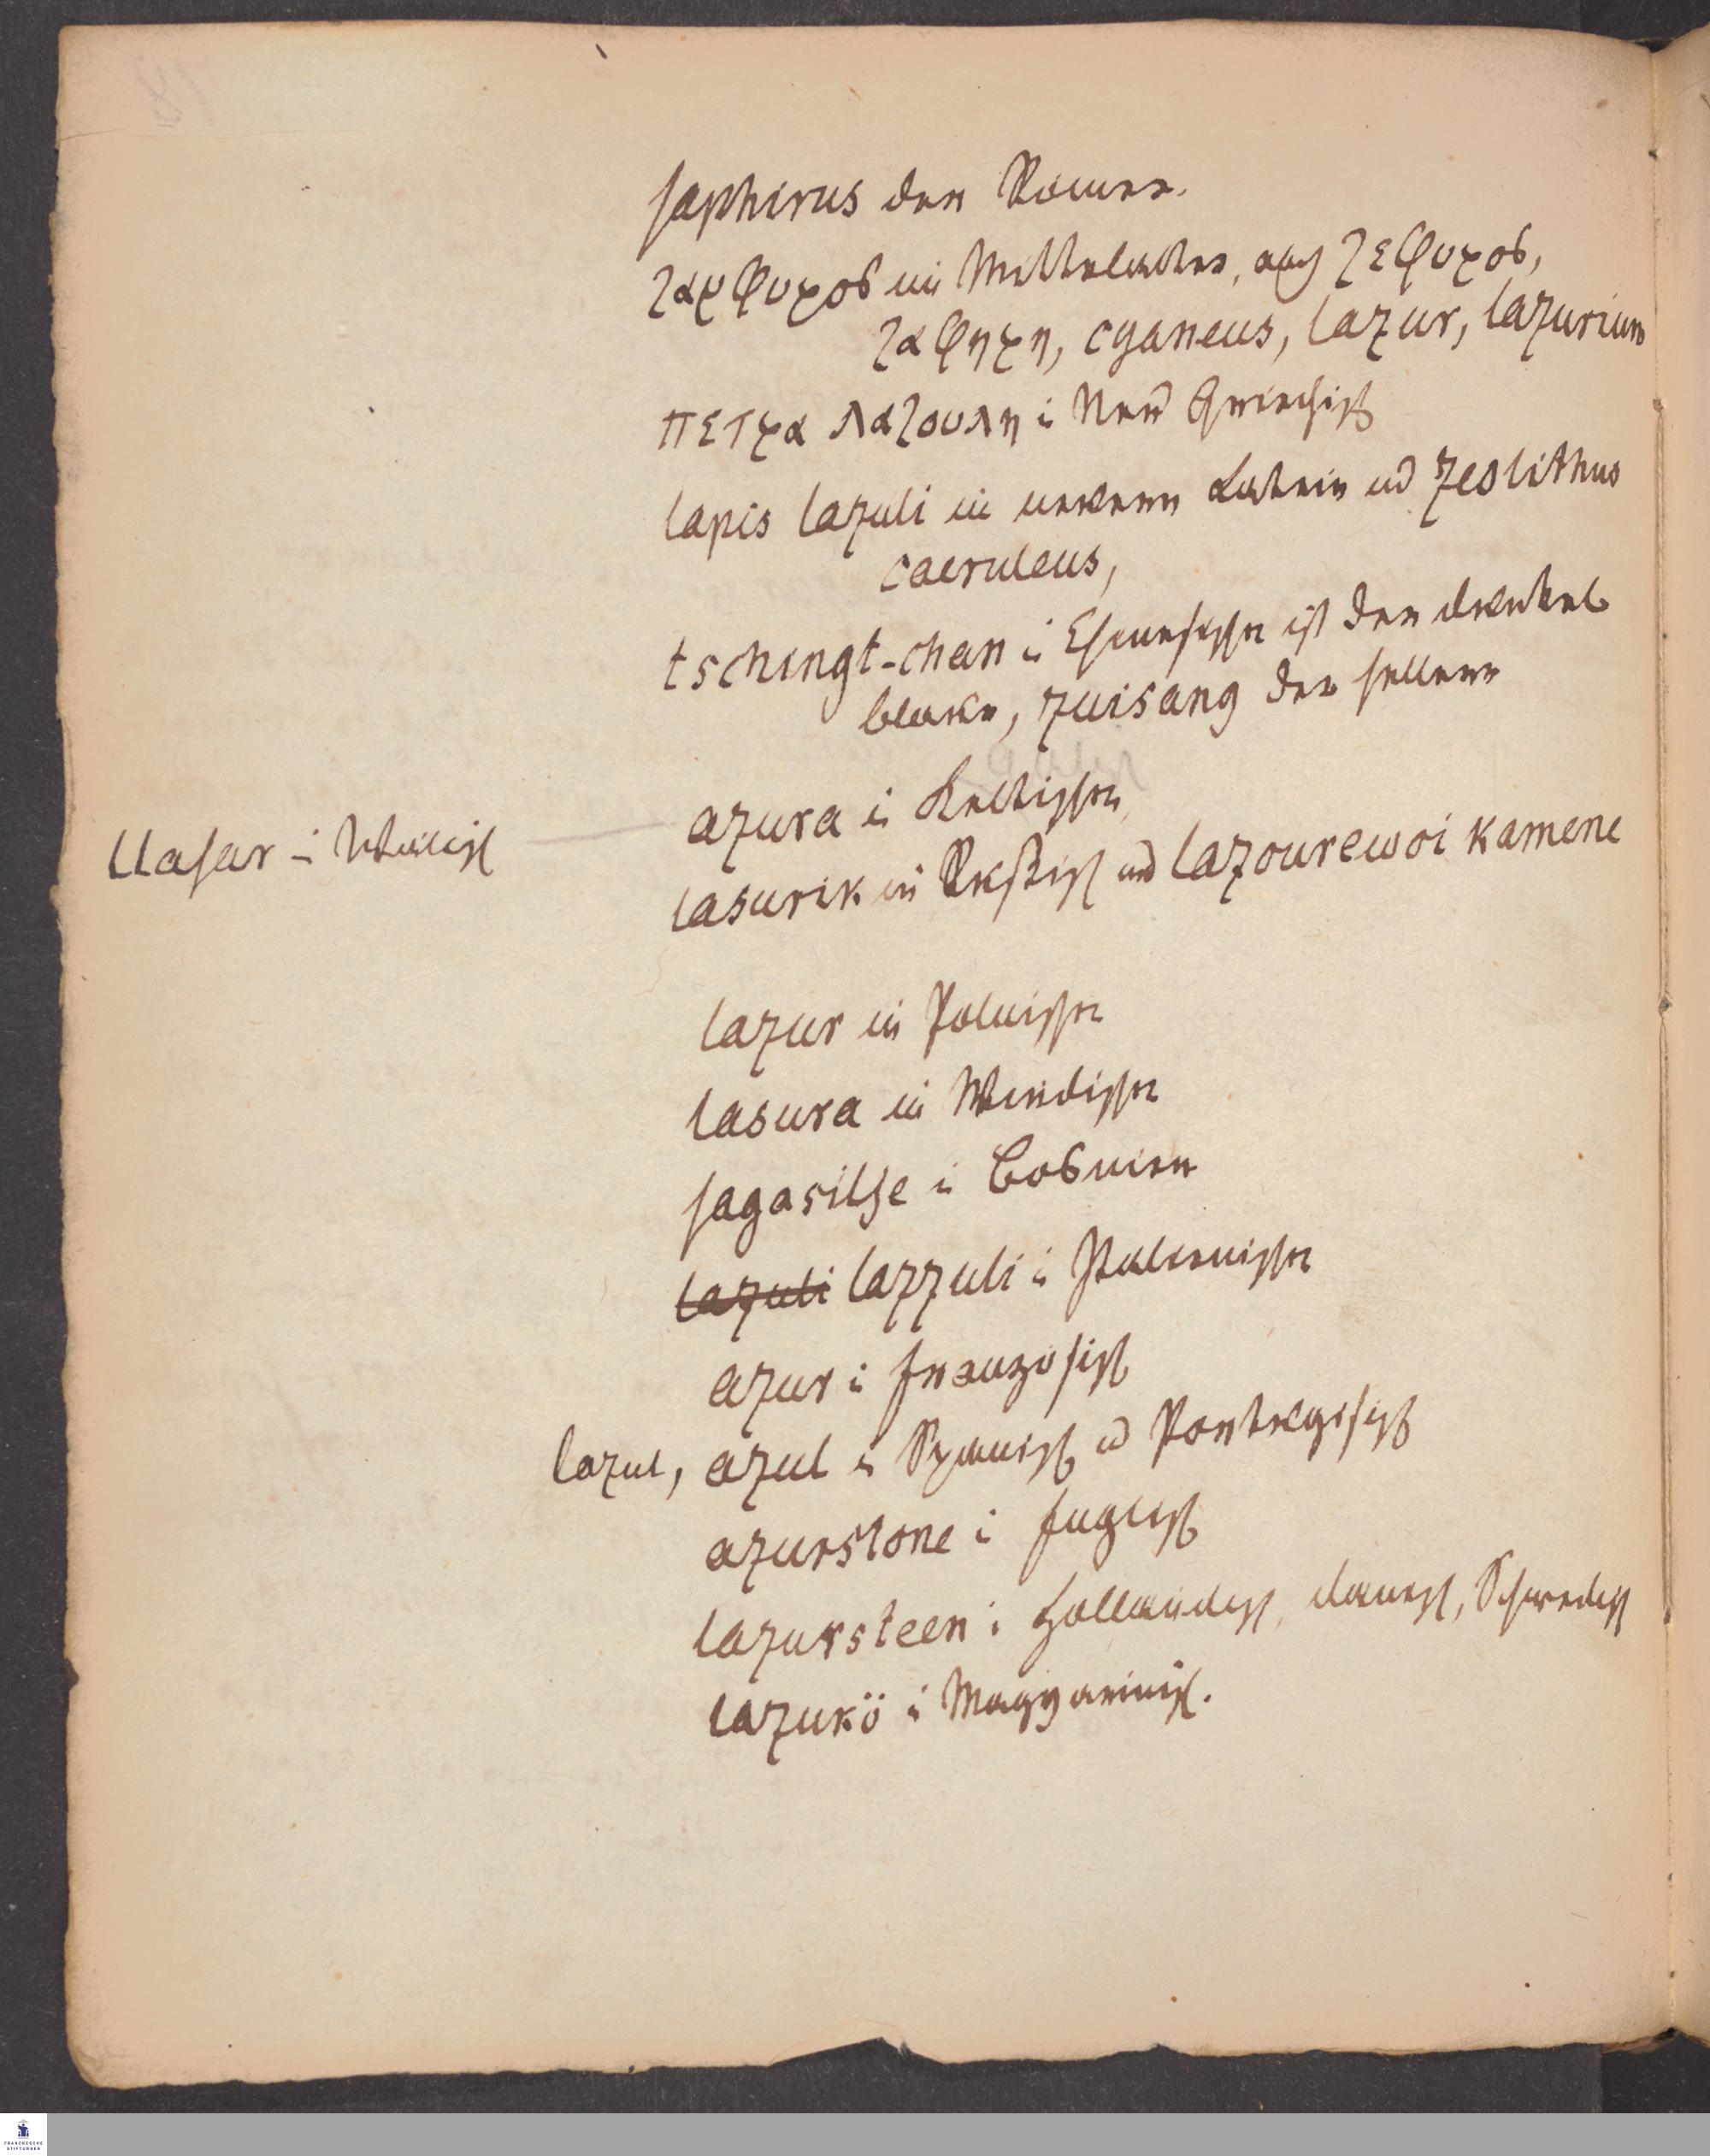 saphirus der Römer.
ζαμφυρος im Mittelalter, auch ζεφυρος,
ζαφηρη, cyaneus, lazur, lazurium
πετρα λαζουλη i Neu Griechisch
lapis lazuli im neueren Latein und zeolithus
caeruleus,
tschingt-chan i Chinesischen ist der dunkel
blaue, zuisang der hellere
azura i Lettischen
llasar i Wälisch
lasurik im Rußisch und lazourewoi kamene
lazur im Polnischen
lasura im Windischen
sagasilje i Bosnien
lazuli lazzuli i Italienischen
azur i französisch
lazul, azul i Spanisch u Portugisisch
azurstone i Englisch
lazursteen i Holländisch, dänisch, Schwedisch
lazurkö i Magyarisch.
FRANCKESCHE
STIFTUNGEN